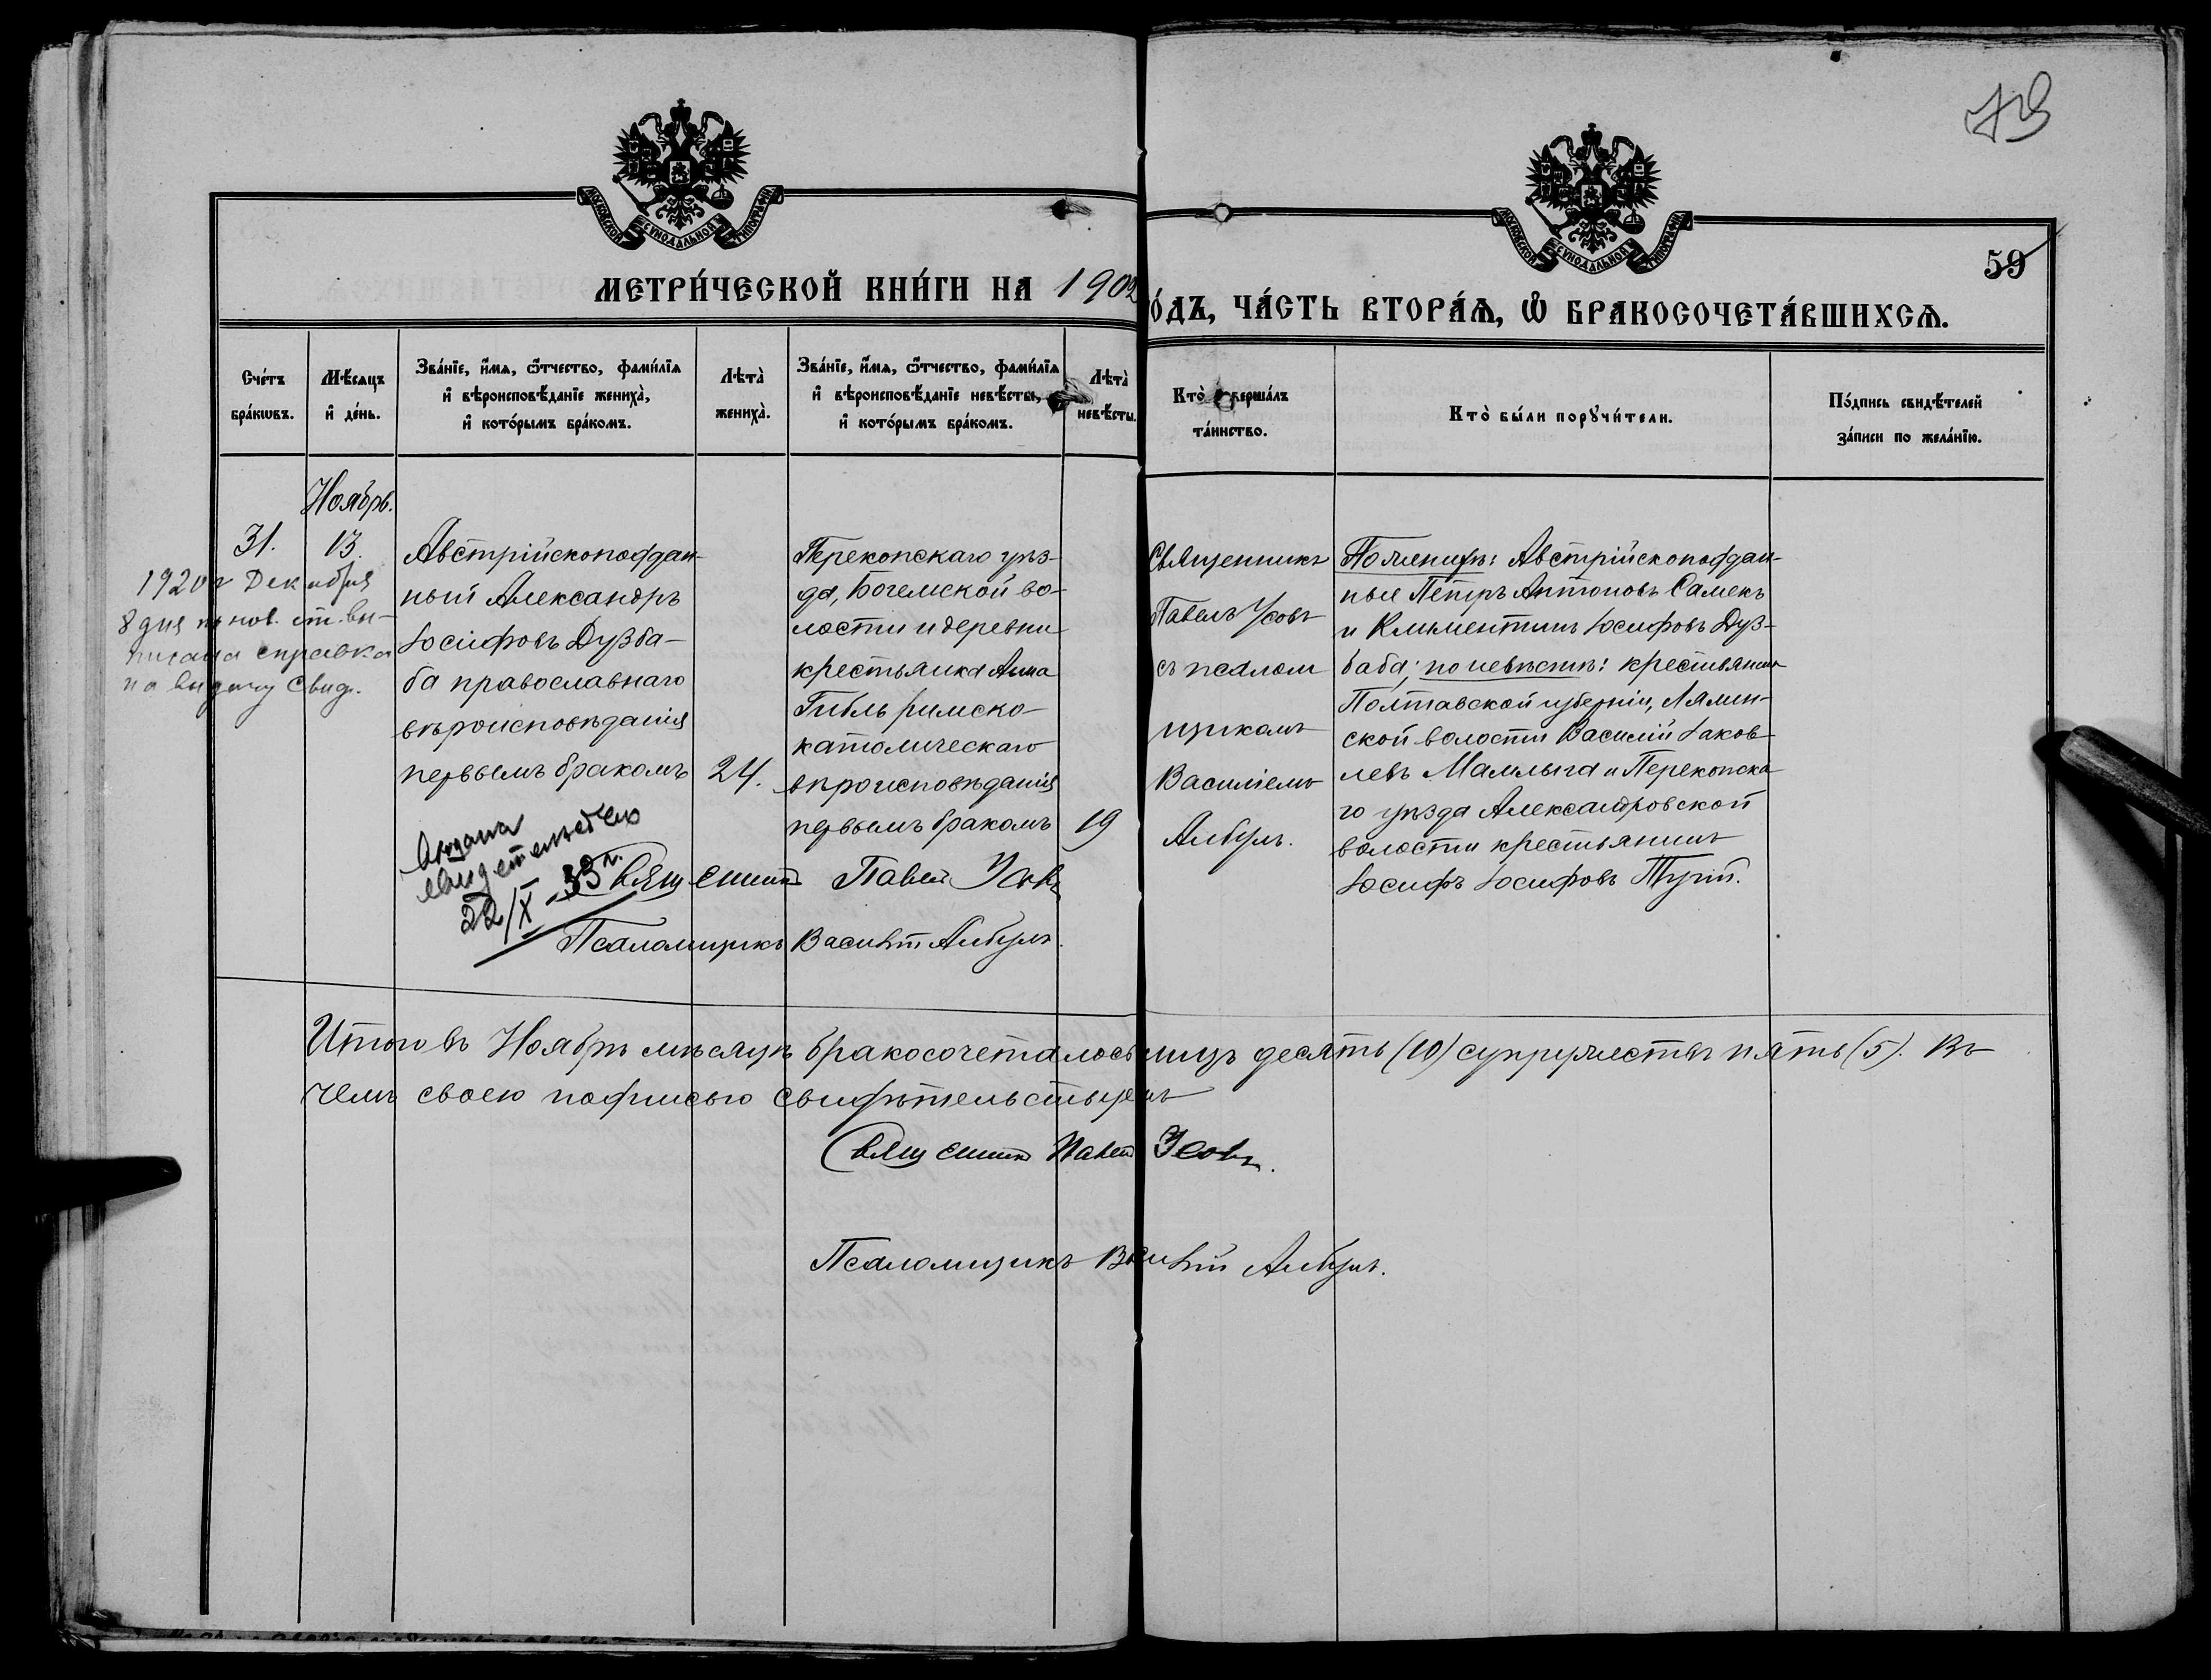 79
59
МЕТРИ́ЧЕСКОЙ КНИ́ГИ НА 1902
О́ДЪ, ЧА́СТЬ ВТОРА́Ѧ, Ѡ БРАКОСОЧЕТА́ВШИХСѦ.
Сче́тъ бра́кѡвъ.
Мѣ́сяцъ и де́нь.
Зва́нїе, и́мѧ, ѻ́тчество, фами́лїѧ
и вѣроисповѣ́данїе жениха̀,
и кото́рымъ бра́комъ.
Лѣта̀ жениха̀.
Зва́нїе, и́мѧ, ѻ́тчество, фами́лїѧ
и вѣроисповѣ́данїе невѣ́сты,
и кото́рымъ бра́комъ.
Лѣта̀ невѣ́сты.
Кто̀ совершалъ та́инство.
Кто̀ бы́ли порꙋчи́тели.
По́дпись свидѣ́телей
за́писи по жела́нїю.
Ноябрь.
31.
13.
1920 г Декабря
8 дня по нов. ст. вы-
писана справка
на выдачу свид.
Австрійскоподдан-
ный Александръ
Іосифовъ Дузба-
ба православнаго
вѣроисповѣданія
первымъ бракомъ
24.
Перекопскаго уѣз-
да, Богемской во-
лости и деревни
крестьянка Анна
Гибль римско-
католическаго
вѣроисповѣданія
первымъ бракомъ
19
Священникъ
Павелъ Усовъ
съ псалом
щикомъ
Василіемъ
Албулъ.
По женихѣ: Австрійскоподдан-
ные Петръ Антоновъ Самекъ
и Климентинъ Іосифовъ Дуз-
баба; по невѣстѣ: крестьянинъ
Полтавской губерніи,
ской волости Василій Іаков-
левъ и Перекопска
го уѣзда Александровской
волости крестьянинъ
Іосифъ Іосифовъ
Выдана
свидетельство
22/X-39 г.
Священникъ Павелъ Усовъ
Псаломщикъ Василій Албулъ.
Итого въ Ноябрѣ мѣсяцѣ бракосочеталось лицъ десять (10) супружествъ пять (5). Въ
чемъ своею подписью свидѣтельствуемъ
Священникъ Павелъ Усовъ.
Псаломщикъ Василій Албулъ.